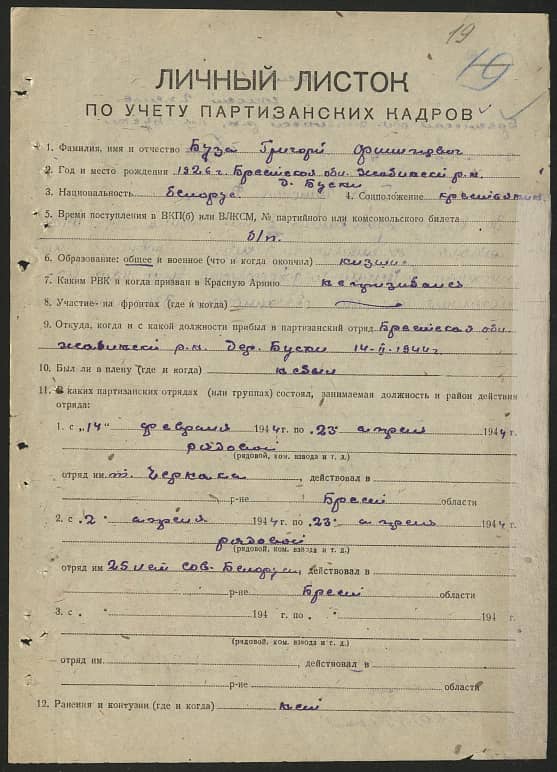 19
19
ЛИЧНЫЙ ЛИСТОК
ПО УЧЕТУ ПАРТИЗАНСКИХ КАДРОВ
1. Фамилия, имя и отчество Буза Григорй
2. Год и место рождения 1926 г. Брестская обл. Жабинкский р.н.
д. Буски
3. Национальность Белорус 4. Соцположение
5. Время поступления в ВКП(б) или ВЛКСМ, № партийного или комсомольского билета
б/п.
6. Образование: общее и военное (что и когда окончил) низшие
7. Каким РВК и когда призван в Красную Армию не призивался
8. Участие на фронтах (где и когда)
9. Откуда, когда и с какой должности прибыл в партизанский отряд Брестская обл.
р.н. дер. Буски 14-II-1944г.
10. Был ли в плену (где и когда) не был
11. В каких партизанских отрядах (или группах) состоял, занимаемая должность и район действия
отряда:
1. с „14" февраля 1944 г. по 23 апреля 1944 г.
рядовой
(рядовой, ком. взвода и т. д.)
отряд им. т. Черкаса, действовал в
р-не Брест области
2. с 2 апреля 1944 г. по 23 апреля 1944 г.
рядовой
(рядовой, ком. взвода и т. д.)
отряд им 25 лет Сов. Белорус, действовал в
р-не Брест области
3. с 194 г. по 194 г.
(рядовой, ком. взвода и т. д.)
отряд им. действовал в
р-не области
12. Ранения и контузии (где и когда) нет